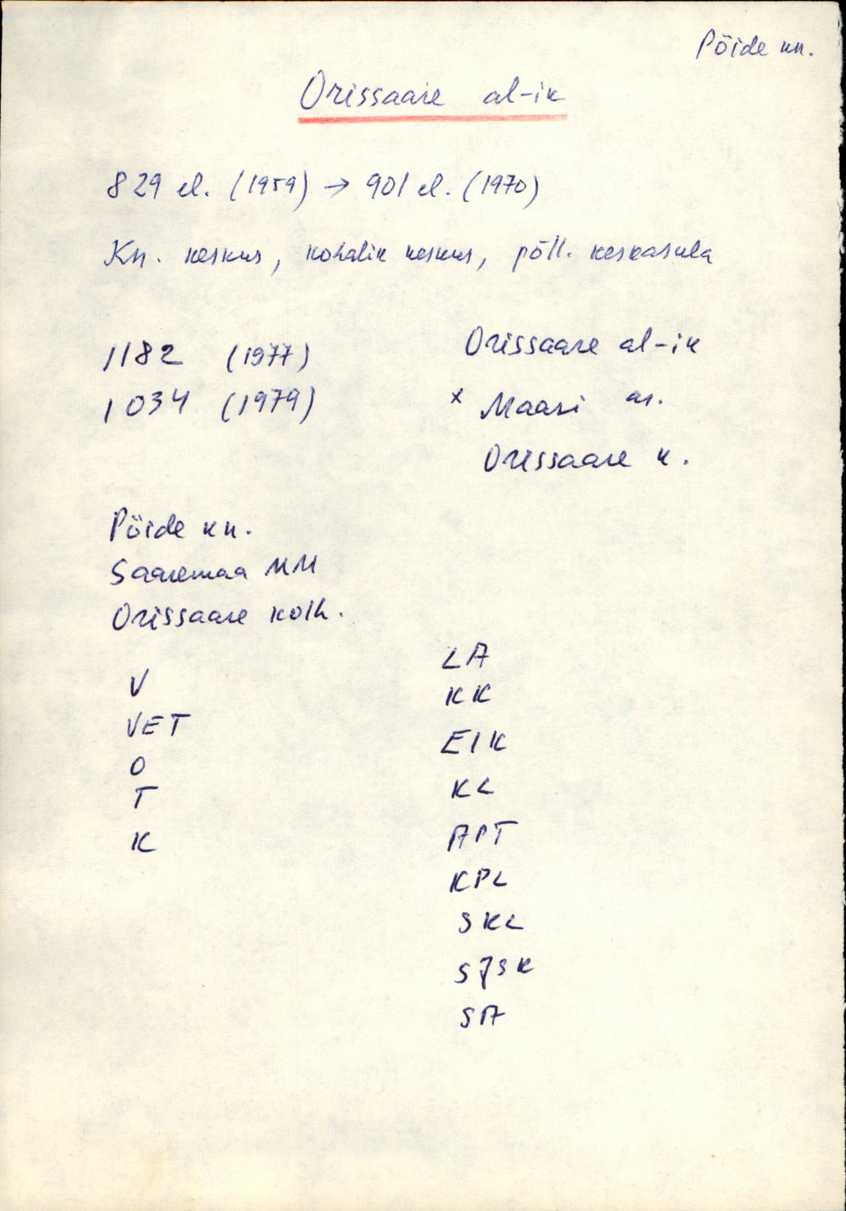 Pöide kn.
Orissaare al-ik
829 el. (1959) → 901 el. (1970)
Kn. keskus, kohalik keskus, põll. keskasula
1182 (1977)
1034 (1979)
Orissaare al-ik
x Maasi as.
Orissaare k.
Pöide kn.
Saaremaa MM
Orissaare kolh.
V
VET
O
T
K
LA
KK
EIK
KL
APT
KPL
SKL
SJSK
SA